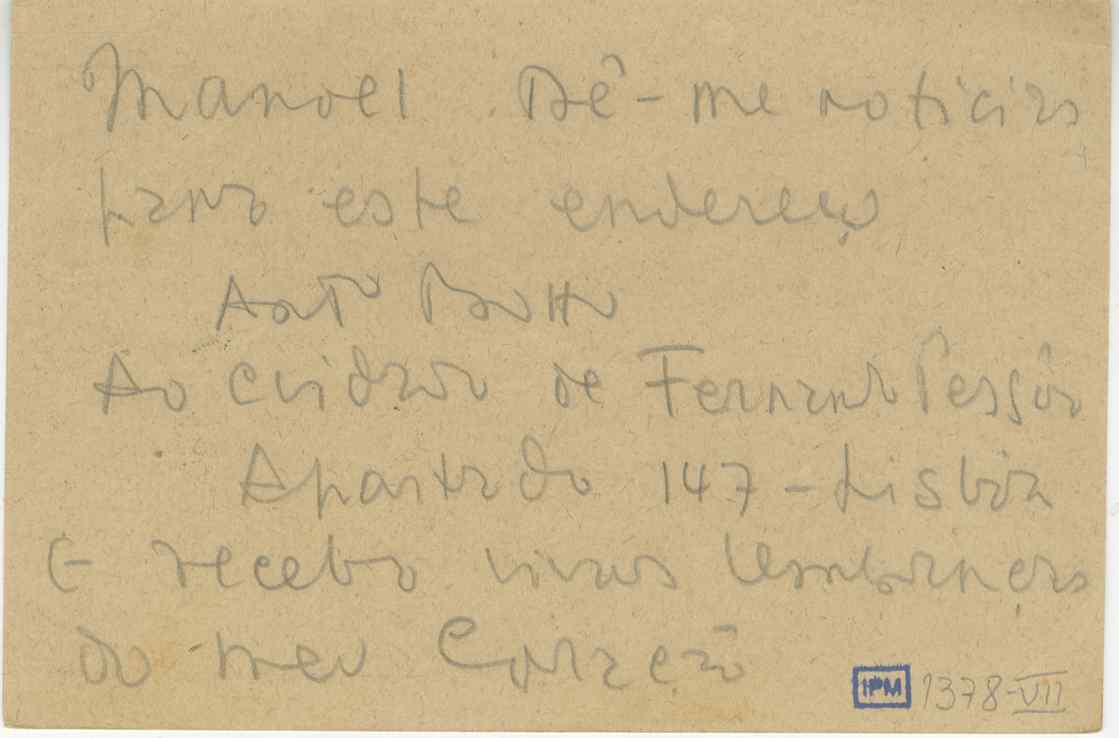 Manoel. Dê-me noticias
para este endereço
Antº Botto
Ao cuidado de Fernando Pessôa
Apartado 147 - Lisbôa
E receba vivas lembranças
do meu Coração
IPM 1378-VII